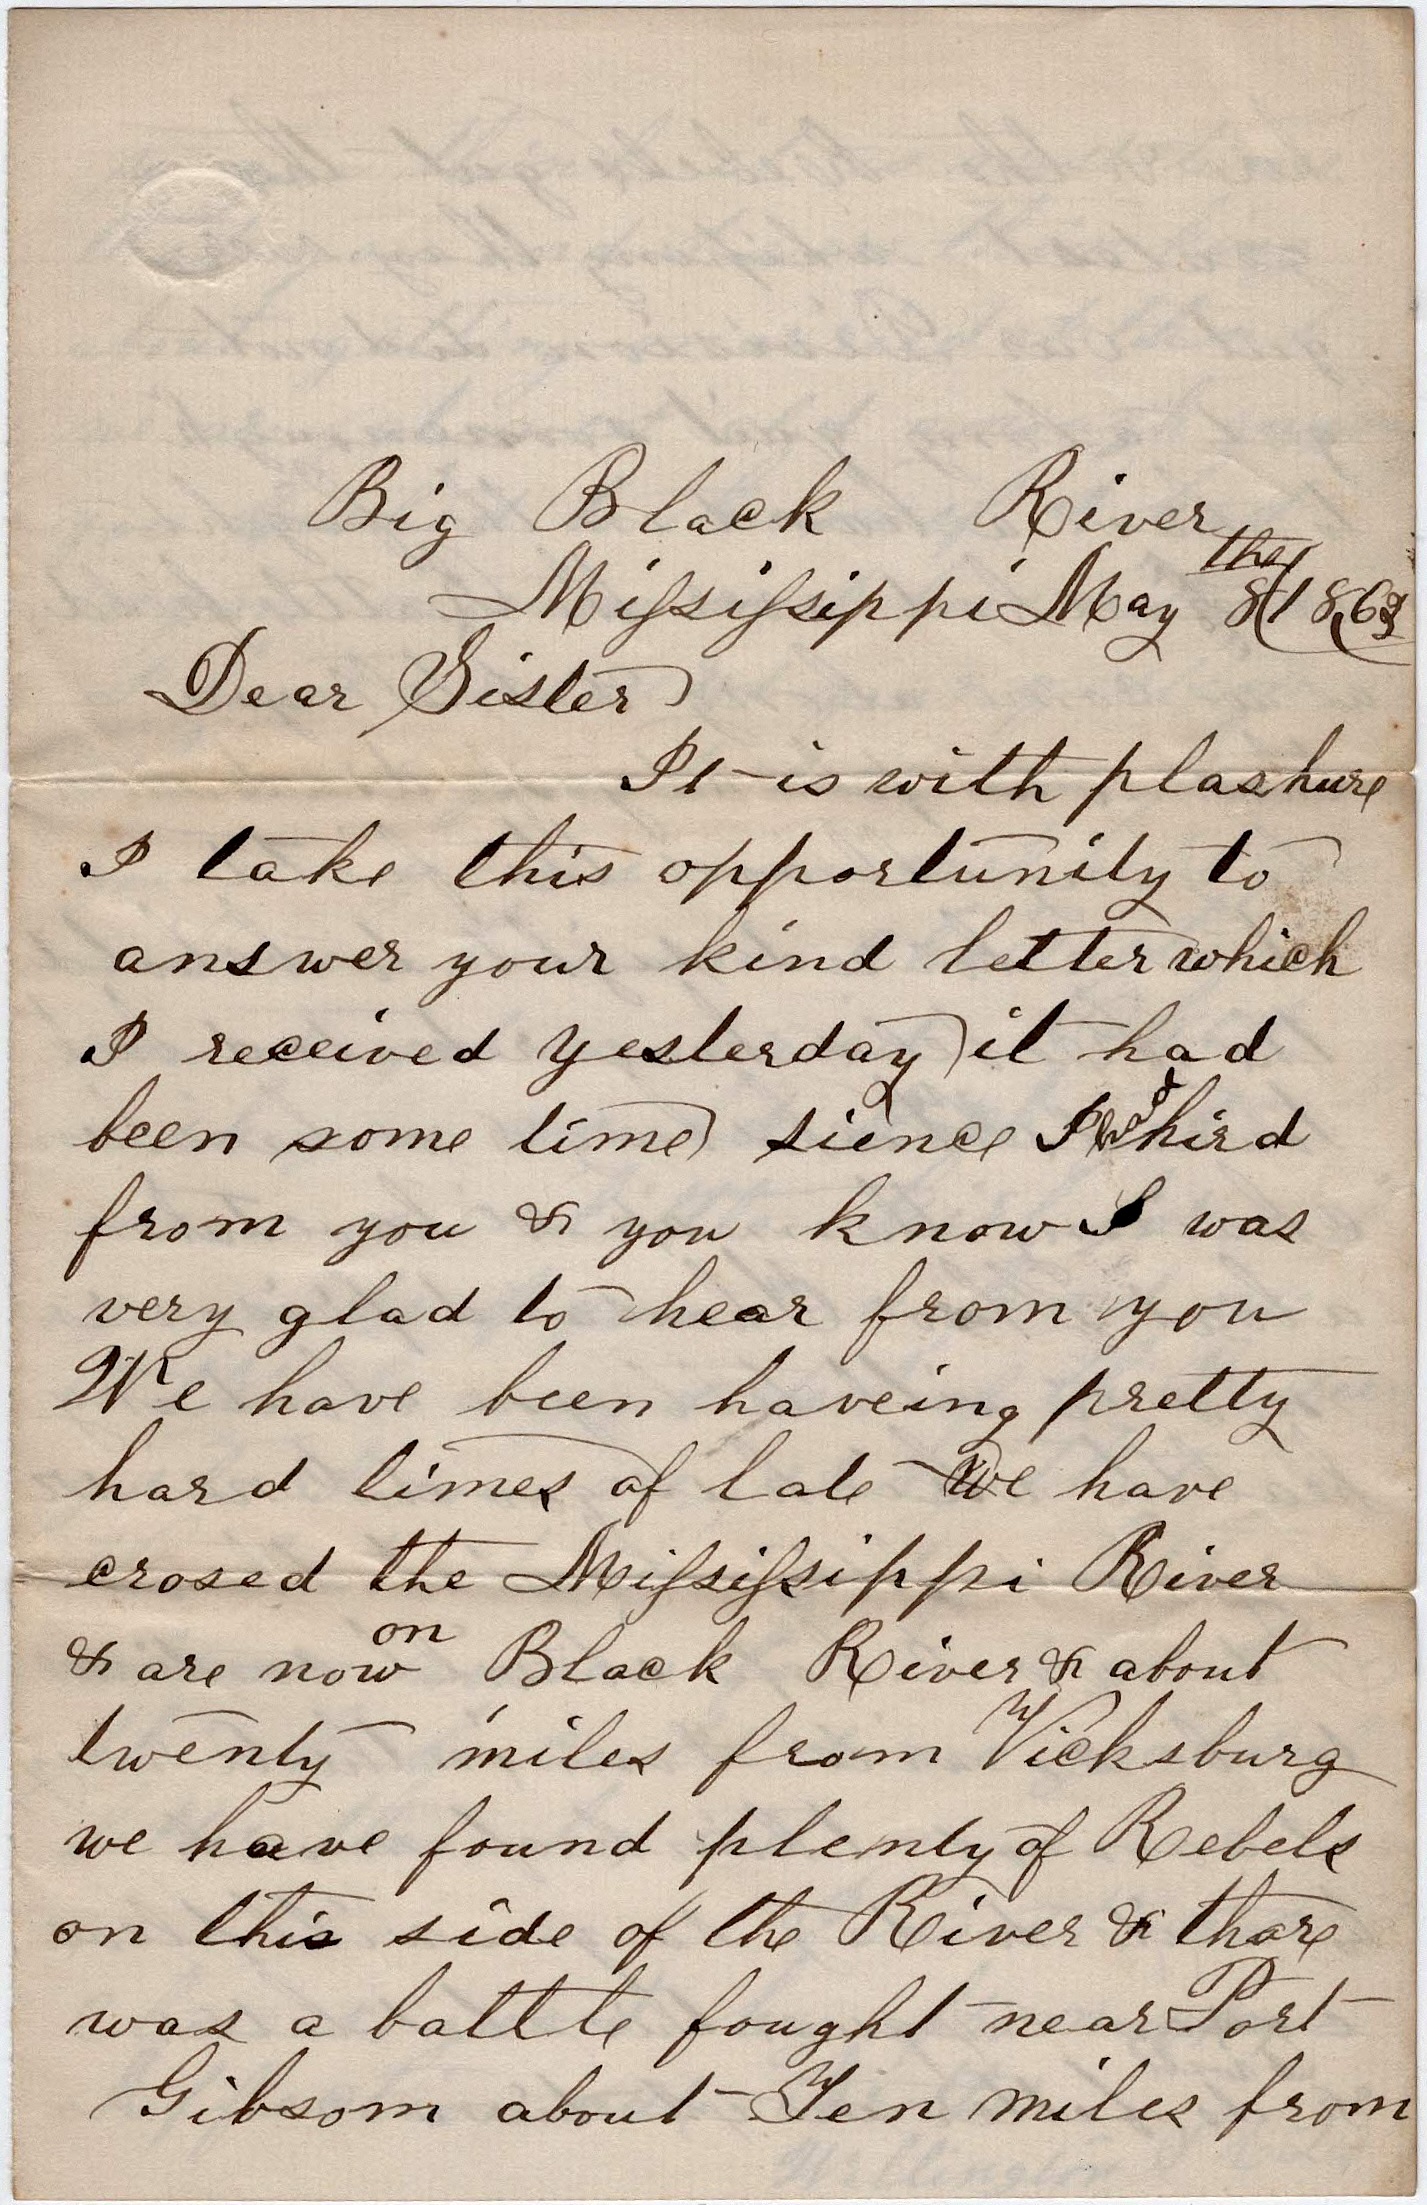 Big Black River
Mississippi May the 8 1863
Dear Sister
It is with plashure
I take this opportunity to
answer your kind letter which
I received yesterday it had
been some time sience I hird
from you & you know I was
very glad to hear from you
We have been haveing pretty
hard times of late We have
crosed the Mississippi River
& are now on Black River & about
twenty miles from Vicksburg
we have found plenty of Rebels
on this side of the River & thare
was a battle fought near Port
Gibsom about Ten miles from